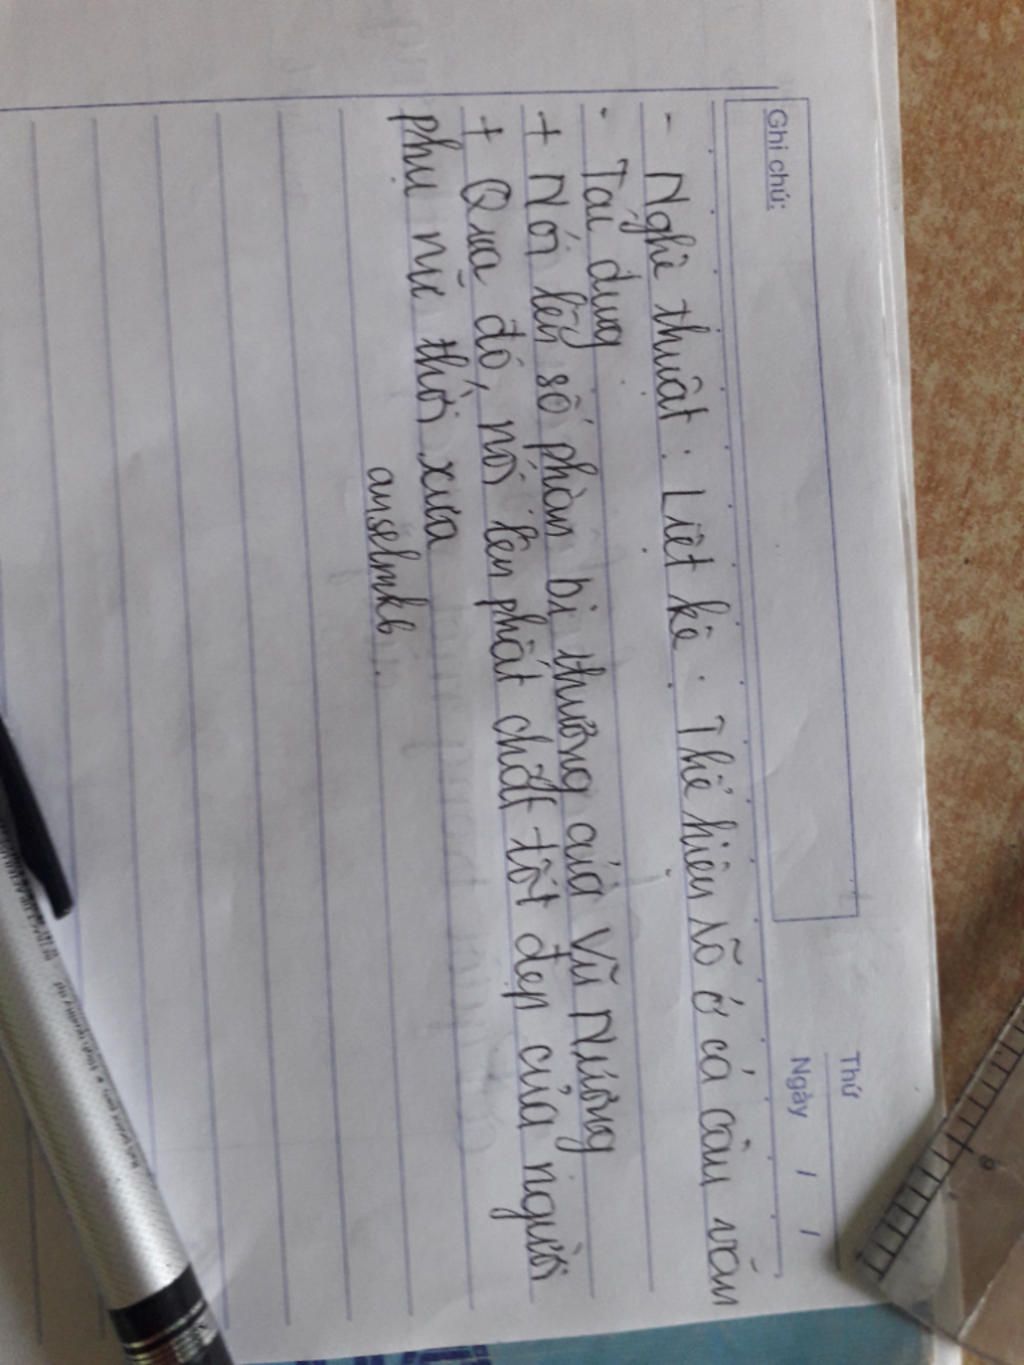 Thứ
Ghi chú:
Ngày / /
- Nghệ thuật: Liệt kê. Thể hiện rõ ở cả câu văn
- Tác dụng
+ Nói lên số phận bi thương của Vũ Nương
+ Qua đó, nói lên phẩt chất tốt đẹp của người
phụ nữ thời xưa
anselmkb